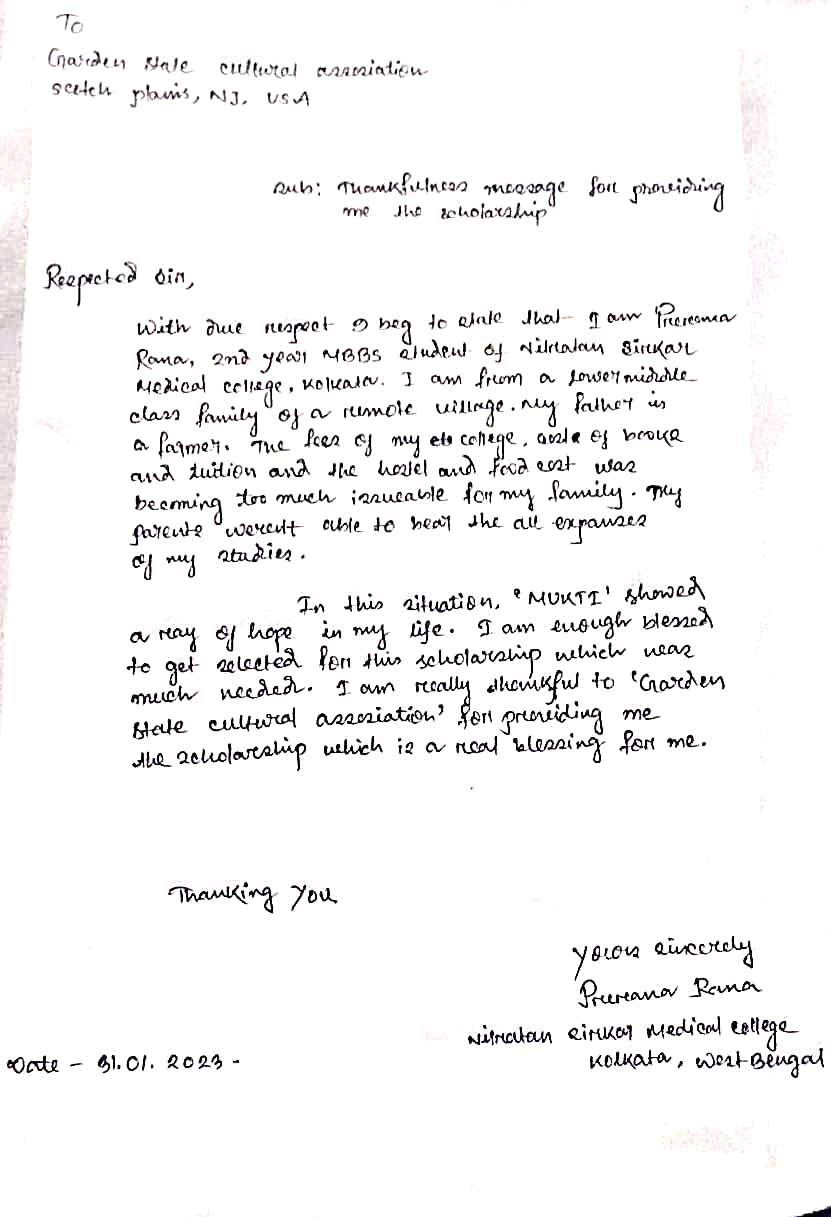 To
Garden State cultural association
scotch plains, NJ, USA
Sub: Thankfulness message for providing
me the scholarship
Respected Sir,
With due respect I beg to state that I am Prerana
Rana, 2nd year MBBS student of Nilratan Sirkar
Medical college, Kolkata. I am from a lower middle
class family of a remote village. My father is
a farmer. The fees of my college, costs of books
and tuition and the hostel and food cost was
becoming too much issueable for my family. My
parents weren't able to bear the all expanses
of my studies.
In this situation, 'MUKTI' showed
a ray of hope in my life. I am enough blessed
to get selected for this scholarship which was
much needed. I am really thankful to 'Garden
State cultural association' for providing me
the scholarship which is a real blessing for me.
Thanking You
Yours sincerely
Prerana Rana
Nilratan Sirkar Medical college
Kolkata, West Bengal
Date - 31.01.2023 -